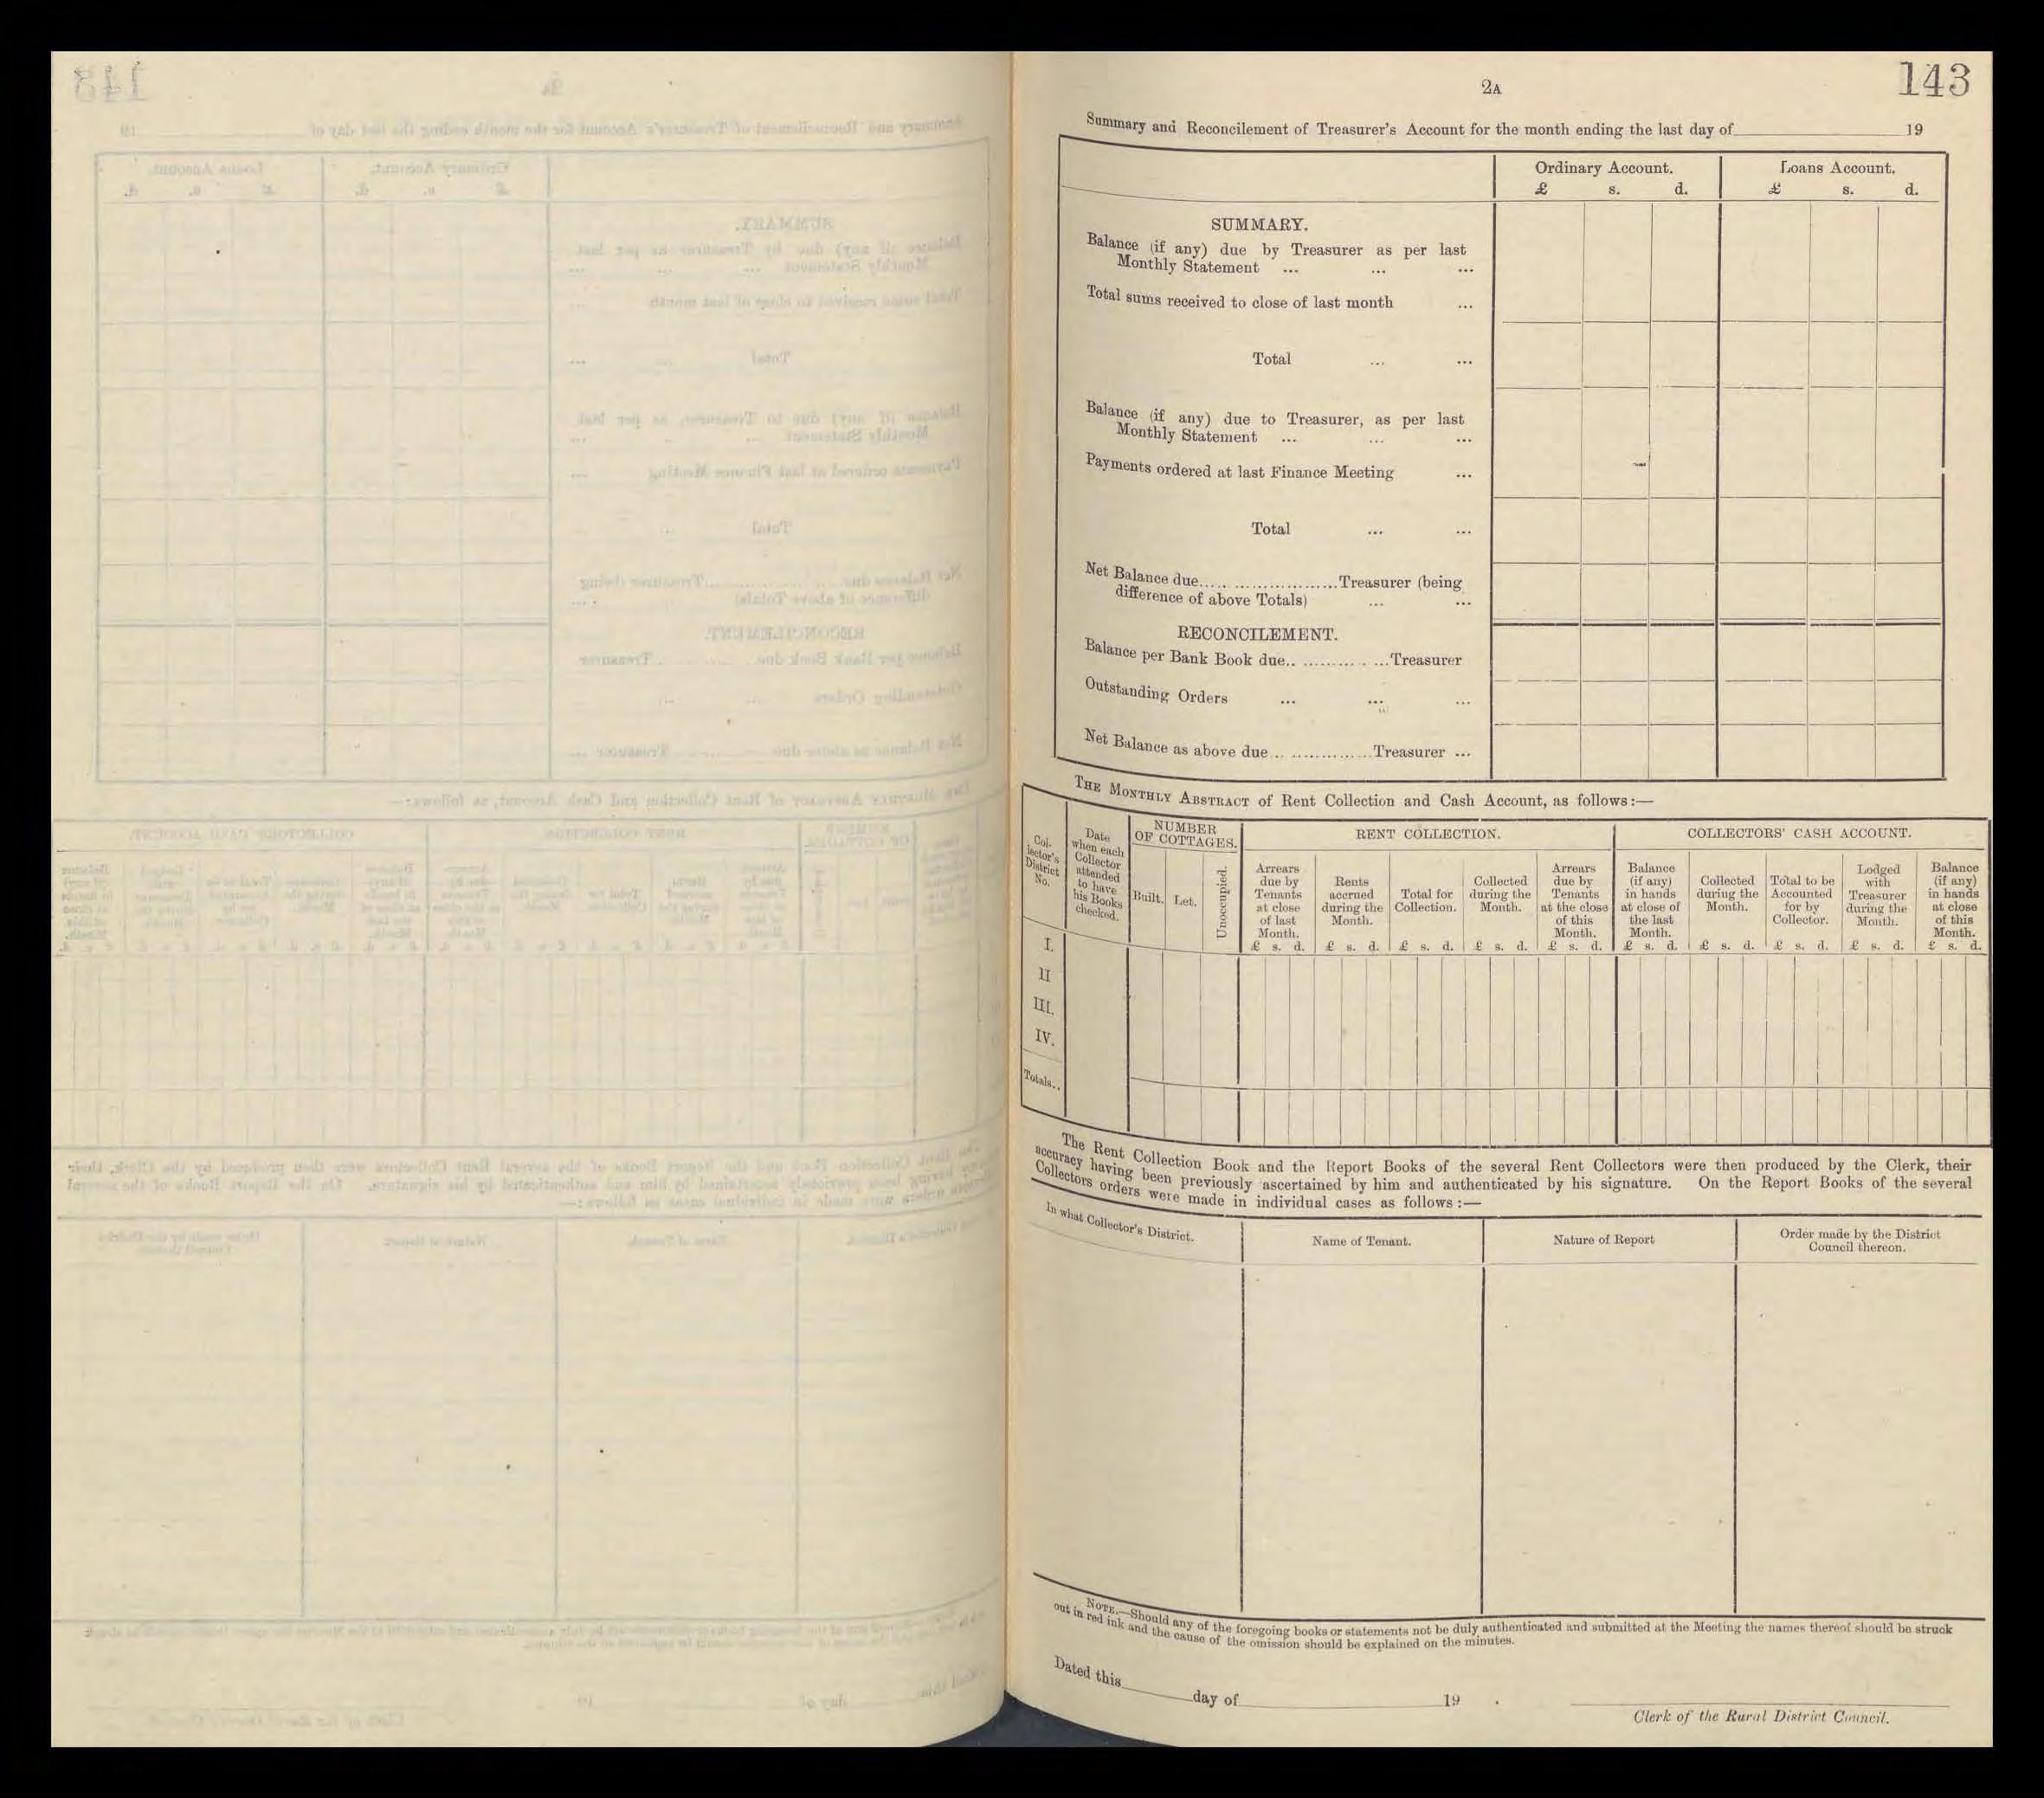 143
2A
Summary and Reconcilement of Treasurer's Account for the month ending the last day of 19
Ordinary Account. Loans Account.
£ s. d. £ s. d.
SUMMARY.
Balance (if any) due by Treasurer as per last
Monthly Statement ... ... ...
Total sums received to close of last month ...
Total ... ...
Balance (if any) due to Treasurer, as per last
Monthly Statement ... ... ...
Payments ordered at last Finance Meeting ...
Total ... ...
Net Balance due........................Treasurer (being
difference of above Totals) ... ...
RECONCILEMENT.
Balance per Bank Book due..................Treasurer
Outstanding Orders ... ... ...
Net Balance as above due..................Treasurer ...
THE MONTHLY ABSTRACT of Rent Collection and Cash Account, as follows:—
Collector's District No.
Date when each Collector attended to have his Books checked.
NUMBER OF COTTAGES.
Built. Let. Unoccupied.
RENT COLLECTION.
Arrears due by Tenants at close of last Month. £ s. d.
Rents accrued during the Month. £ s. d.
Total for Collection. £ s. d.
Collected during the Month. £ s. d.
Arrears due by Tenants at the close of this Month. £ s. d.
COLLECTORS' CASH ACCOUNT.
Balance (if any) in hands at close of the last Month. £ s. d.
Collected during the Month. £ s. d.
Total to be Accounted for by Collector. £ s. d.
Lodged with Treasurer during the Month. £ s. d.
Balance (if any) in hands at close of this Month. £ s. d.
I.
II
III.
IV.
Totals..
The Rent Collection Book and the Report Books of the several Rent Collectors were then produced by the Clerk, their
accuracy having been previously ascertained by him and authenticated by his signature. On the Report Books of the several
Collectors orders were made in individual cases as follows:—
In what Collector's District. Name of Tenant. Nature of Report Order made by the District
Council thereon.
NOTE.—Should any of the foregoing books or statements not be duly authenticated and submitted at the Meeting the names thereof should be struck
out in red ink and the cause of the omission should be explained on the minutes.
Dated this day of 19 .
Clerk of the Rural District Council.